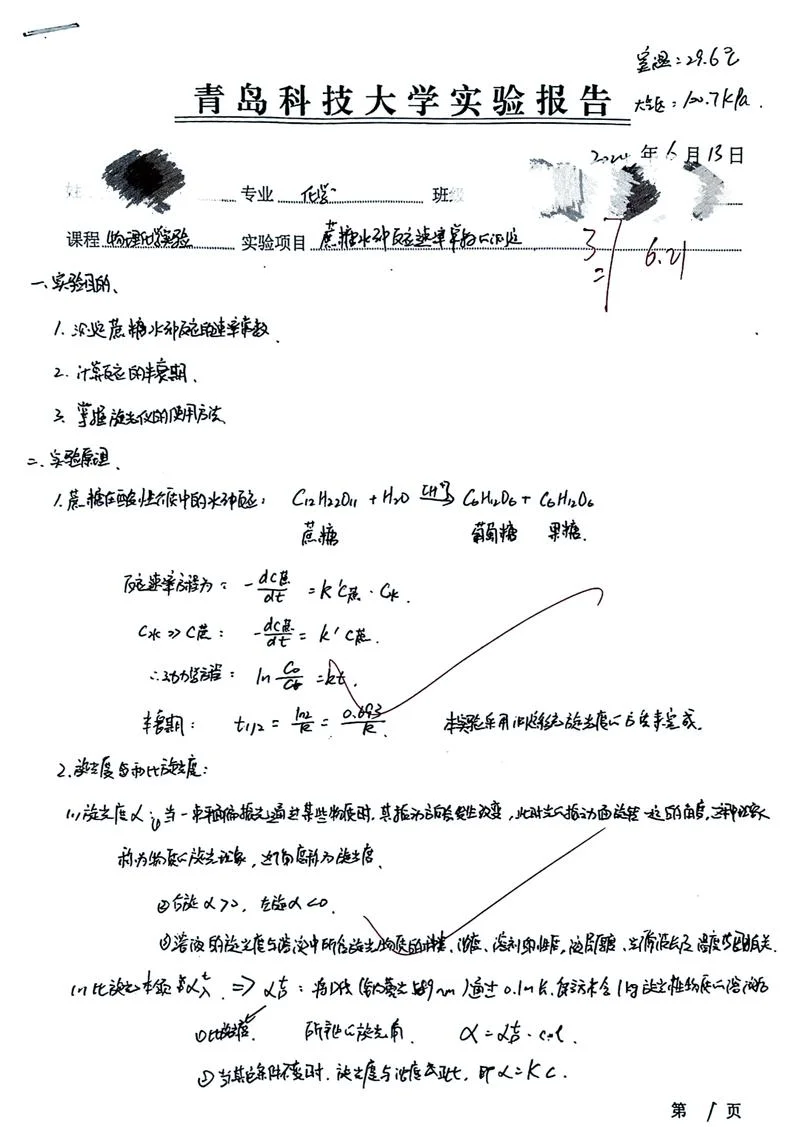 室温:29.6℃
青岛科技大学实验报告
大气压:100.7kPa.
2024年6月13日
姓 专业 化学 班级
课程 物理化学实验 实验项目 蔗糖水解反应速率常数的测定
3 6.21
一、实验目的、
1. 测定蔗糖水解反应的速率常数.
2. 计算反应的半衰期、
3. 掌握旋光仪的使用方法
二、实验原理、
1. 蔗糖在酸性介质中的水解反应: C12H22O11 + H2O [H+]→ C6H12O6 + C6H12O6
蔗糖 葡萄糖 果糖.
反应速率方程为: -dC蔗/dt = k'C蔗·C水.
C水>>C蔗: -dC蔗/dt = k'C蔗.
∴动力学方程: ln C0/Ct = kt.
半衰期: t1/2 = ln2/k = 0.693/k. 本实验采用测旋光度的方法来完成.
2. 旋光度与比旋光度:
(1) 旋光度α: ① 当一束平面偏振光通过某些物质时,其振动方向会发生改变,此时光的振动面旋转一定的角度,这种现象
称为物质的旋光现象,这个角度称为旋光度.
② 右旋α>0,左旋α<0.
③ 溶液的旋光度与溶液中所含旋光物质的种类、浓度、溶剂的性质、液层厚度、光源波长及温度等因素有关.
(2) 比旋光本领 αtλ => αtD: 将D线 (钠黄光589nm) 通过0.1m长、每 含1 旋光性物质的溶液后
① 比旋光度 所产生的旋光角. α=αtD·c·l.
② 当其它条件不变时,旋光度与浓度成正比,即α=KC.
第 1 页